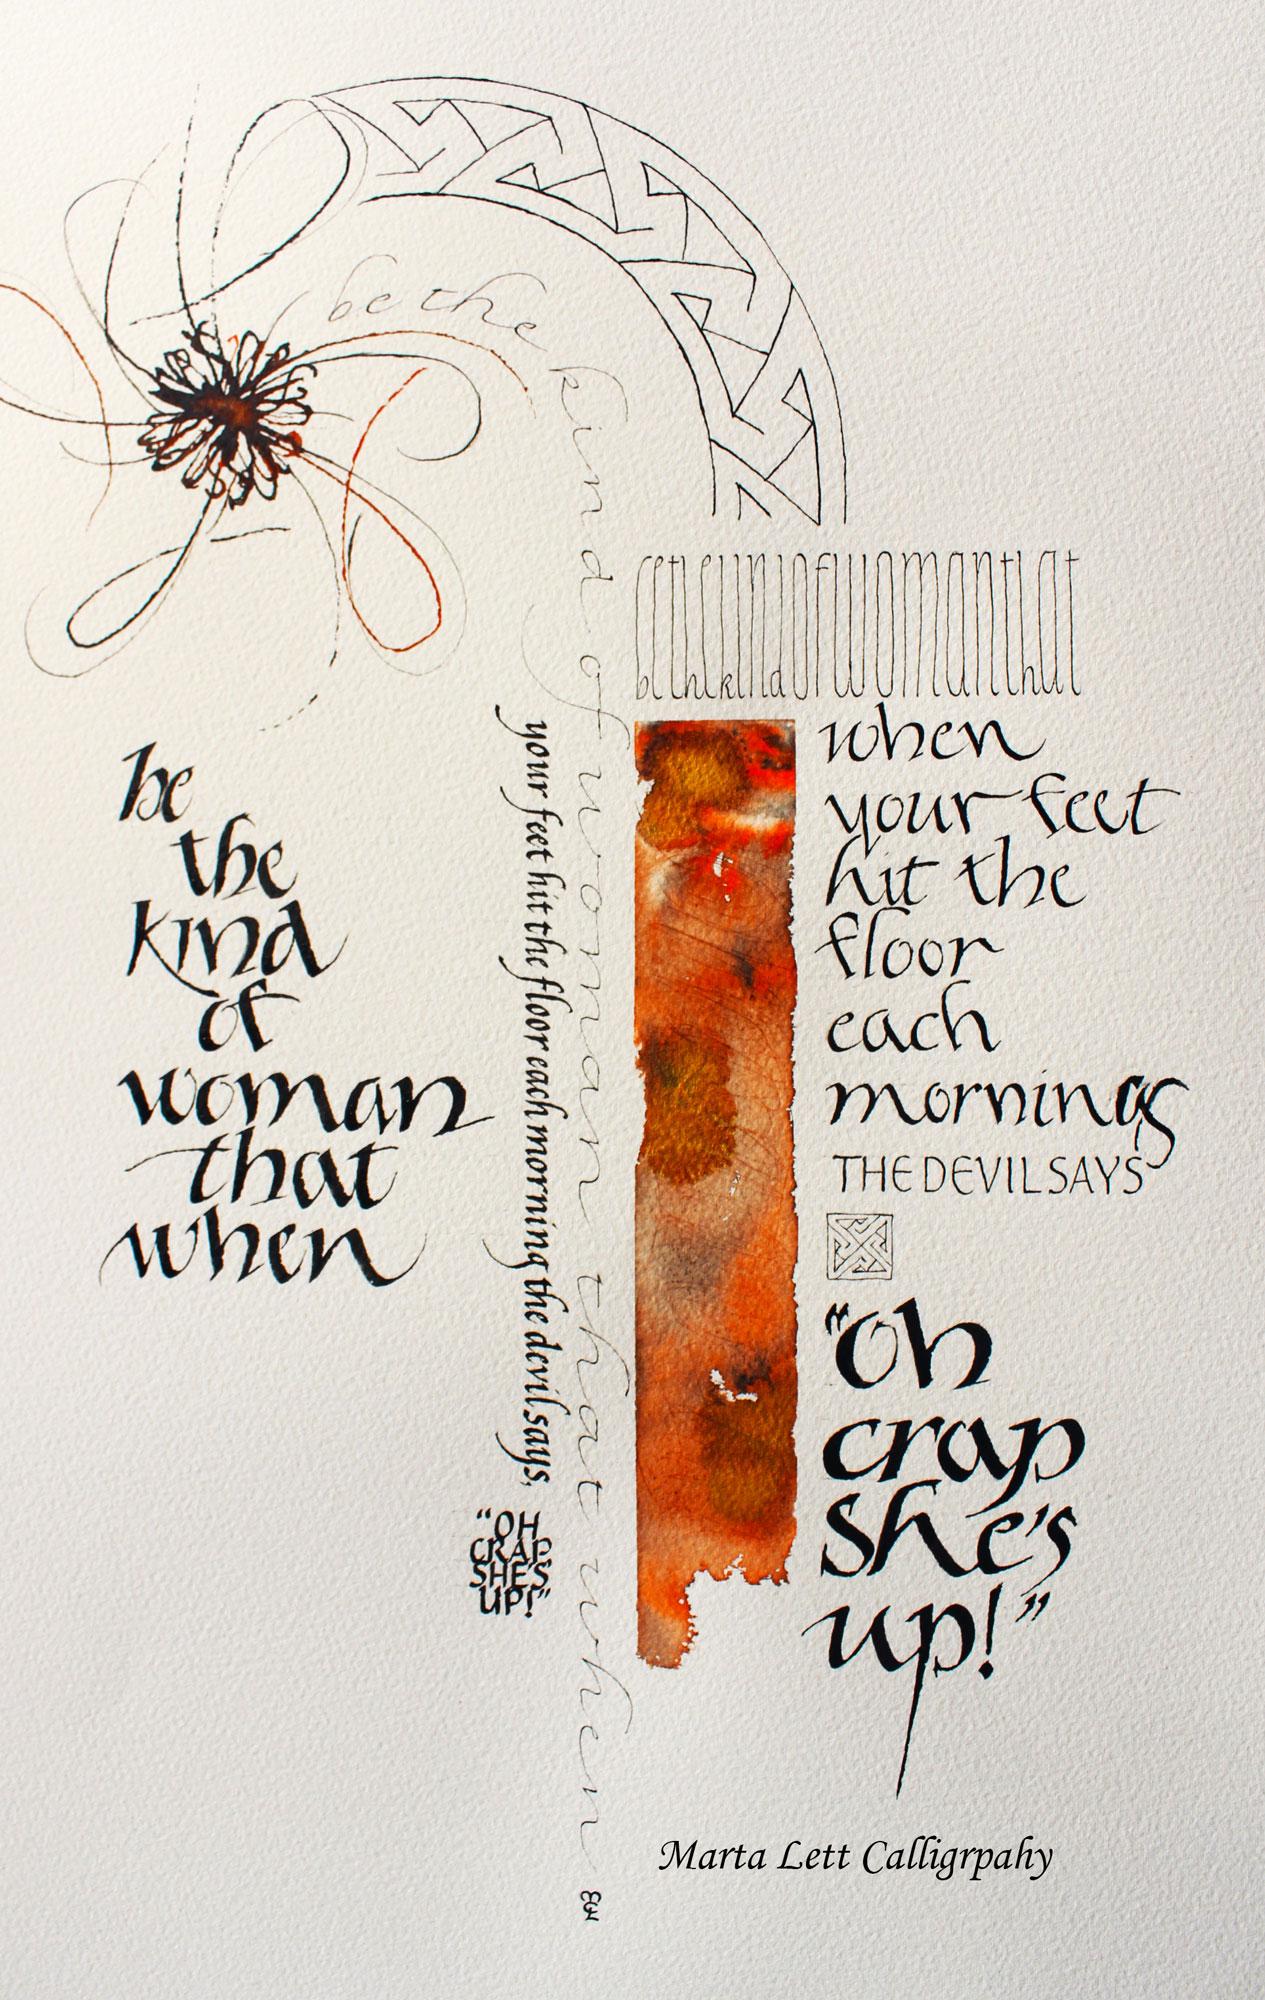 be the kind of woman that when
bethekindofwomanthat
be
the
kind
of
woman
that
when
your feet hit the floor each morning the devil says,
"OH
CRAP
SHE'S
UP!"
when
your feet
hit the
floor
each
morning
THE DEVIL SAYS
"oh
crap
she's
up!"
Marta Lett Calligrpahy